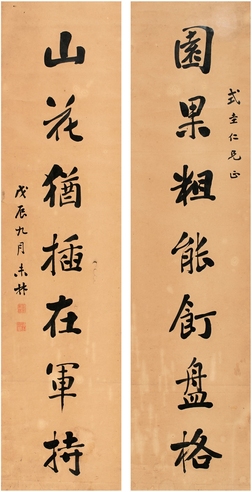 園果粗能飣盤格
式圭仁兄正
山花猶插在軍持
戊辰九月未村